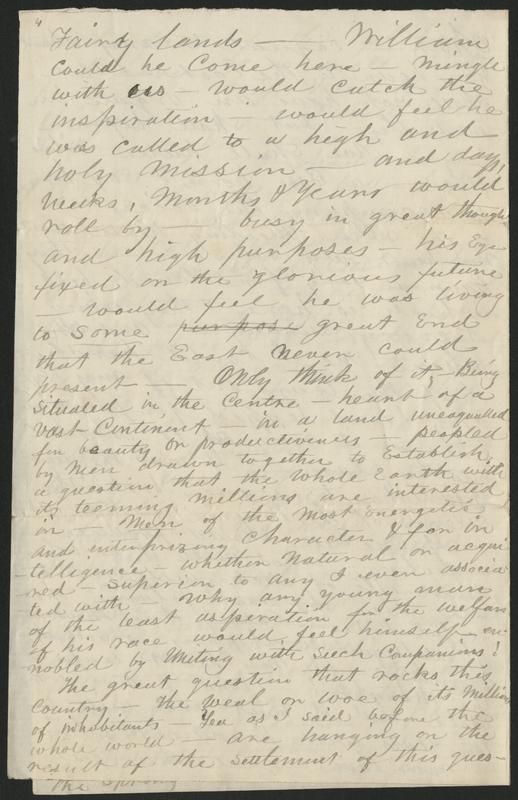 4
Fairy lands — William
Could he Come here — mingle
with us — would catch the
inspiration — would feel he
was called to a high and
holy mission — and days,
weeks, months & Years would
roll by — busy in great thoughts
and high purposes — his Eye
fixed on the glorious future
— would feel he was living
to some purpose great End
that the East never could
present — Only think of it, Being
Situated in the Centre — heart of a
Vast Continent — in a land unequalled
for beauty or productiveness — peopled
by men drawn together to Establish,
a question that the whole Earth with
its teeming millions are interested
in — Men of the most energetic
and interprizing Character & for in
-telligence — whether Natural or acqui
red — Superior to any I ever associa
ted with — Why any young man
of the least aspiration for the welfare
of his race would feel himself en-
nobled by Uniting with Such Companions!
The great question that rocks this
Country — the weal or woe of its Millions
of inhabitants — Yea as I said before the
whole world — are hanging on the
result of the Settlement of this ques-
the Spring